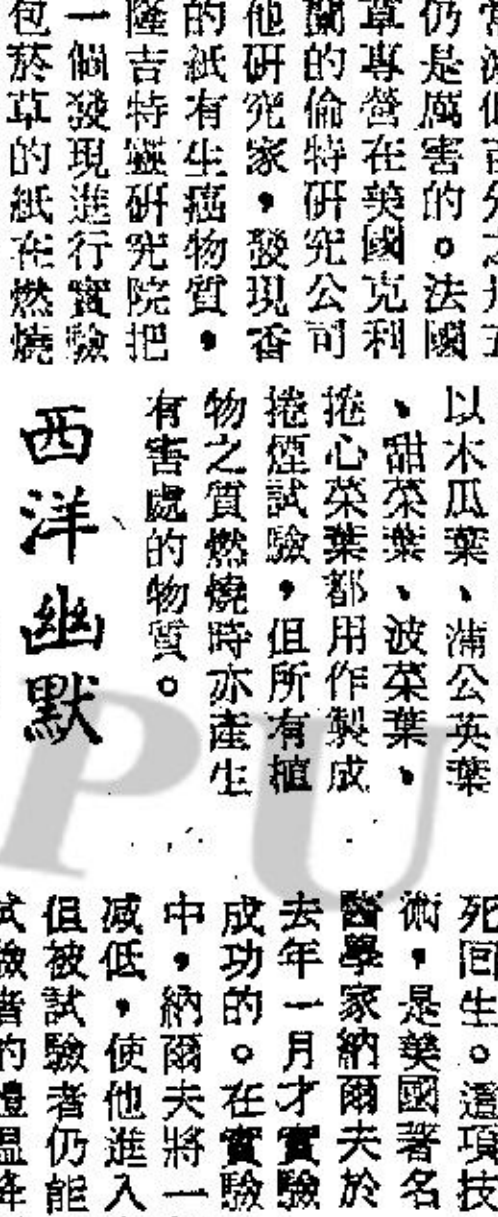 仍是厲害的。法國
草專營在美國克利
蘭的倫特研究公司
他研究家，發現香
的紙有生癌物質，
隆吉特靈研究院把
一個發現進行實驗
包菸草的紙在燃燒
以木瓜葉、蒲公英葉
、甜菜葉、波菜葉、
捲心菜葉都用作製成
捲煙試驗，但所有植
物之質燃燒時亦產生
有害處的物質。
西洋幽默
死回生。這項技
術，是美國著名
醫學家納爾夫於
去年一月才實驗
成功的。在實驗
中，納爾夫將一
减低，使他進入
但被試驗者仍能
試驗者的體温降
PU